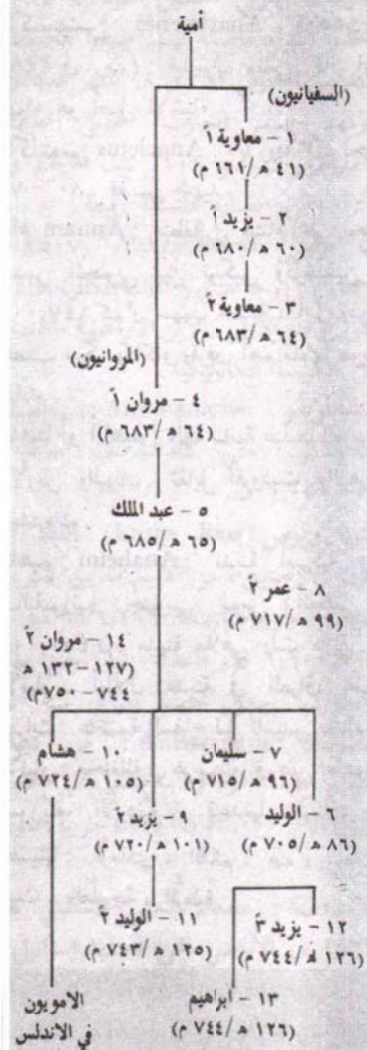 أمية
(السفيانيون)
١ - معاوية ١ً
(٤١ هـ/٦٦١ م)
٢ - يزيد ١
(٦٠ هـ/٦٨٠ م)
٣ - معاوية ٢ً
(٦٤ هـ/٦٨٣ م)
(المروانيون)
٤ - مروان ١ً
(٦٤ هـ/٦٨٣ م)
٥ - عبد الملك
(٦٥ هـ/٦٨٥ م)
٨ - عمر ٢ً
(٩٩ هـ/٧١٧ م)
١٤ - مروان ٢ً
(١٢٧-١٣٢ هـ
٧٤٤-٧٥٠م)
٦ - الوليد
(٨٦ هـ/٧٠٥ م)
٧ - سليمان
(٩٦ هـ/٧١٥ م)
٩ - يزيد ٢
(١٠١ هـ/٧٢٠ م)
١٠ - هشام
(١٠٥ هـ/٧٢٤ م)
١١ - الوليد ٢
(١٢٥ هـ/٧٤٣ م)
١٢ - يزيد ٣ً
(١٢٦ هـ/٧٤٤ م)
١٣ - ابراهيم
(١٢٦ هـ/٧٤٤ م)
الأمويون
في الاندلس